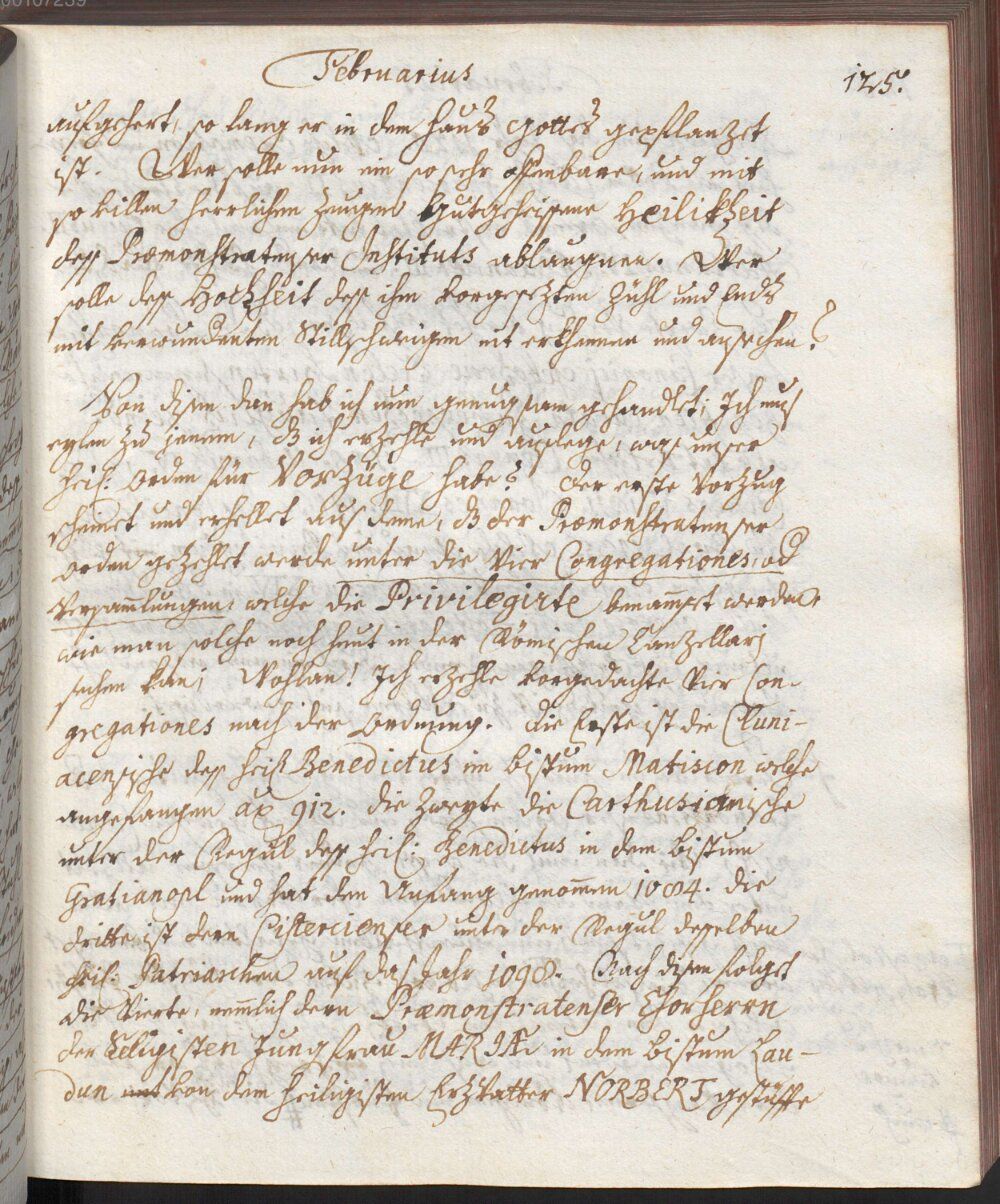 00107239
Februarius 125.
aufgehert, so lang er in dem Hauß Gottes gepflantzet
ist. Wer solle nun ein so sehr offenbare, und mit
so villen herrlichen Zeugen Gutgeheissene Heilikheit
dess Præmonstratenser Instituts ablaugnen. Wer
solle dess Hochheit dess ihm vorgesezten Zühl und Ends
mit verwundenten Stillschweigen nit erkhennen und ansechen?
Von disem dan hab ich nun genuegsam gehandlet; Ich mus
eylen zu jenem, dß ich erzehle und auslege, was unser
heil: Orden für Vorzüge habe? Der erste Vorzug
scheinet und erhellet aus deme, dß der Præmonstratenser
Orden gezehlet werde unter die Vier Congregationes, od
Versammlungen, welche die Privilegirte benampst werden,
wie man solche noch heut in der Römischen Canzellarj
sehen kan, Wohlan! Ich erzehle vorgedachte Vier Con-
gregationes nach der Ordnung. Die Erste ist die Cluni-
acensische dess heil Benedictus im Bistum Matiscon welche
angefangen aõ 912. die Zweyte die Carthusianische
unter der Regul dess heil: Benedictus in dem Bistum
Gratianopl und hat den Anfang genommen 1084. die
dritte ist dern Cistercienser unter der Regul desselben
heil: Patriarchen auf das Jahr 1098. Nach disem folget
die Vierte, nemlich dern Præmonstratenser Chorherrn
der Seligisten Jungfrau MARIÆ in dem Bistum Lau-
dun von dem heiligisten Erzvatter NORBERT gestüffte